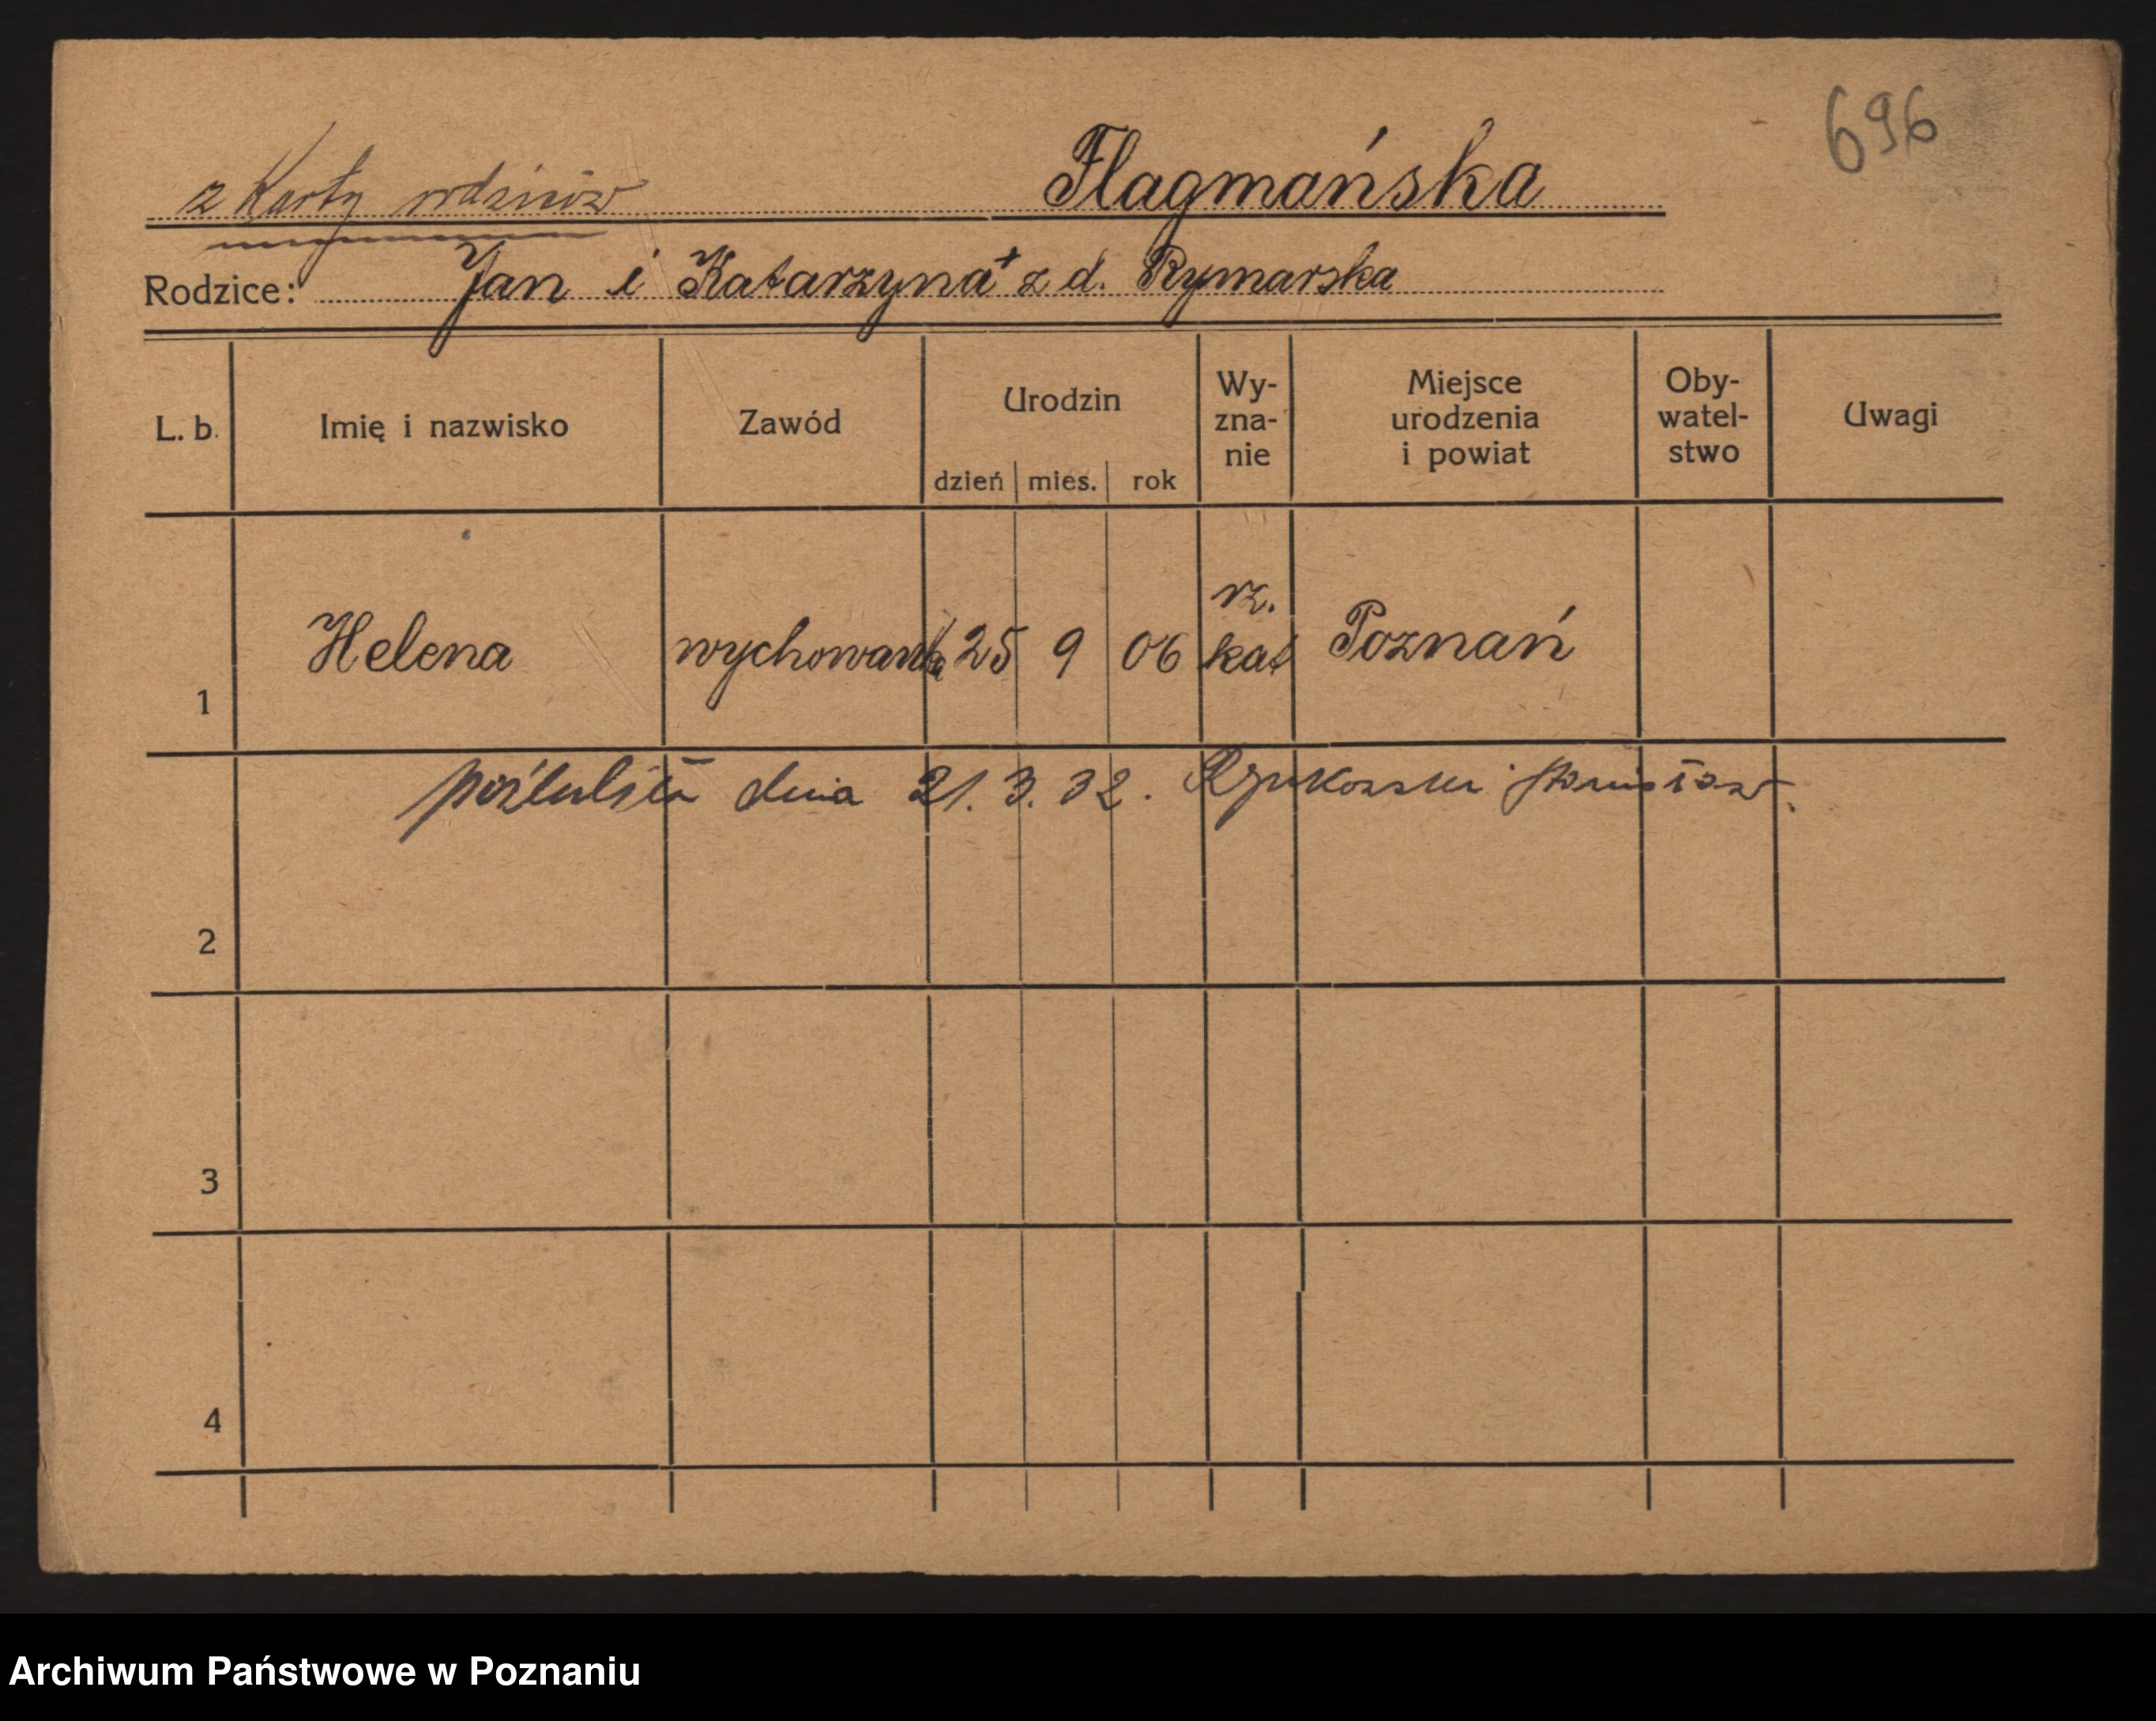 696
z Karty rodziców Flagmańska
Rodzice: Jan i Katarzyna + z d. Rymarska
L. b. Imię i nazwisko Zawód Urodzin dzień mies. rok Wy-zna-nie Miejsce urodzenia i powiat Oby-watel-stwo Uwagi
rz.
1 Helena wychowanka 25 9 06 kat Poznań
poślubiła dnia 21. 3. 32. Stanisław.
2
3
4
Archiwum Państwowe w Poznaniu